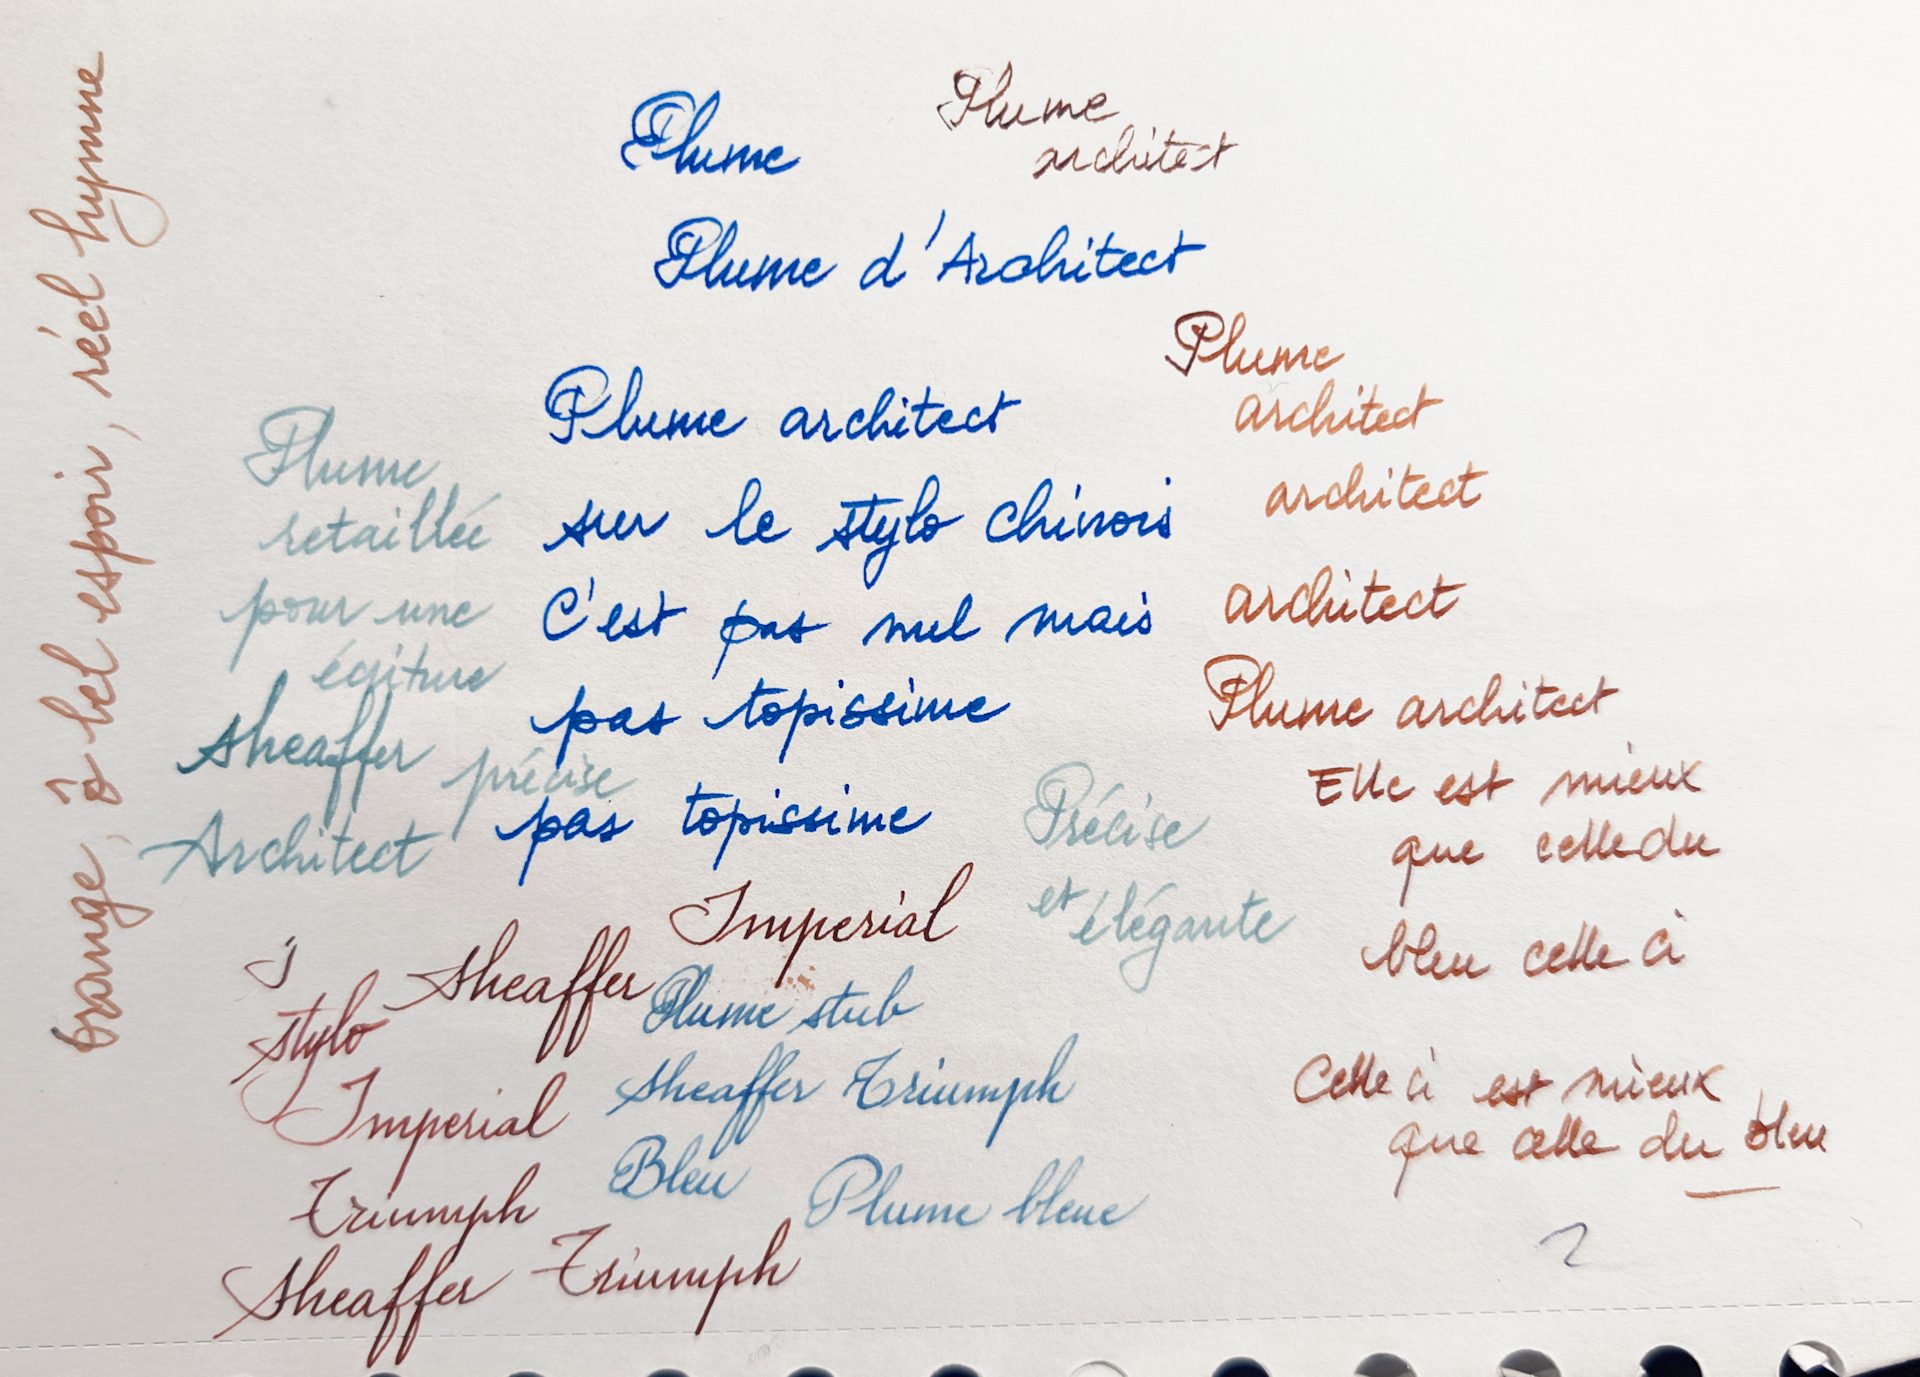 orange, ô bel espoir, réel hymne
Plume
Plume
architect
Plume d'Architect
Plume
architect
architect
architect
Plume architect
Elle est mieux
que celle du
bleu celle ci
Celle ci est mieux
que celle du bleu
Plume architect
sur le stylo chinois
C'est pas mal mais
pas topissime
pas topissime
Plume
retaillée
pour une
écriture
précise
Sheaffer
Architect
Précise
et élégante
Imperial
Sheaffer
stylo
Imperial
Triumph
Sheaffer Triumph
Plume stub
Sheaffer Triumph
Bleu
Plume bleue